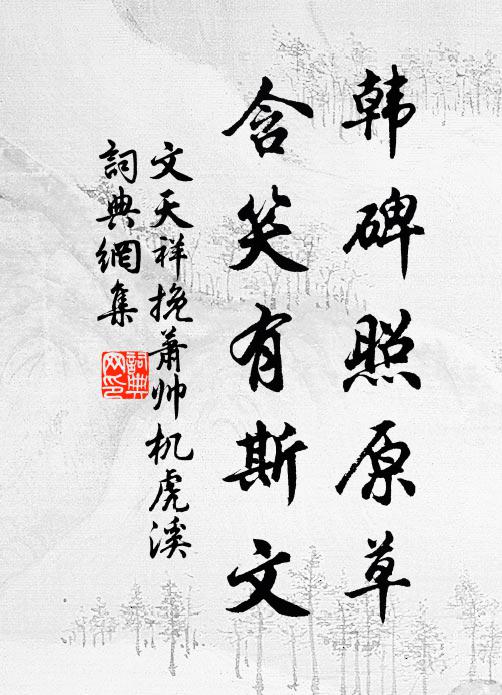 韩碑照原草
含笑有斯文
文天祥挽萧帅机虎溪
詞典網集
詞典网印